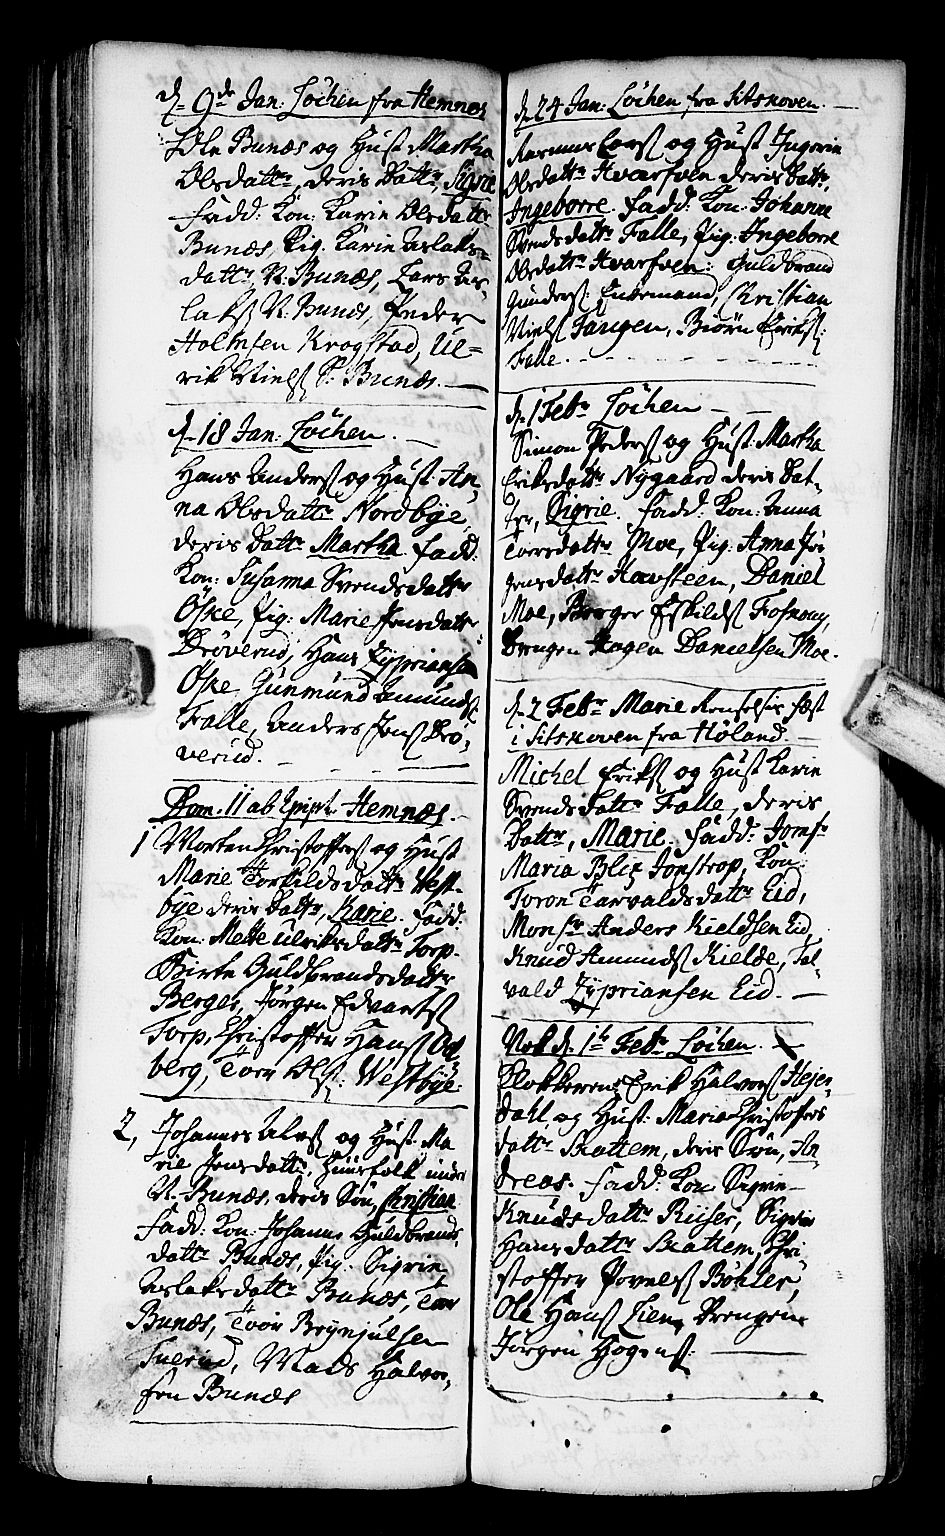 d. 9de Jan: Löchen fra Hemnæs
Ole Bunæs og Hust Martha
Olsdattr, deris Dattr, Sigrie
fadd: Kon: Karin Olsdattr
Bunæs Pig. Karin Aslaks=
dattr, N. Bunæs, Lars As-
laks N. Bunæs, Peder
Holmsen Krogstad, Ul=
rik Niels S. Bunæs.
d. 18 Jan: Löchen.
Hans Anders og Hust An-
na Olsdattr Nordbye,
deris Dattr Martha fadd:
Kon: Susanna Svendsdattr
Öske, Pig: Marie Jensdattr
Dröverud, Hans Zyprianson
Öske Gunmund Amunds
Falle, Anders Jens Drö-
verud.
Dom. II ab Epiph. Hemnæs.
1 Morten Christoffers og Hust
Marie Torkildsdattr West-
bye deris Dattr, Karie. Fadd:
Kon: Mette Ulriksdattr Torp.
Birte Guldbrandsdattr
Berger, Jörgen Edvarts
Torp, Christoffer Hans
berg, Toer Ols: Westbye.
2, Johannes Alvs og Hust. Ma
rie Jensdattr, Huusfolk under
N. Bunæs, deris Sön, Christian
Fadd: Kon: Johanne Guldbrands,
dattr Bunæs, Pig. Sigrie
Aslaksdattr Bunæs, Toer
Bunæs, Toor Brynjulsen
Tuerud, Mads Halvor,
sen Bunæs
d. 24 Jan: Löchen fra Sitskoven.
Rasmus Lars og Hust Ingerie
Olsdattr Hvarfven deris Dattr,
Ingeborre. Fadd: Kon. Johanne
Svendsdattr Falle, Pig. Ingeborre
Olsdattr Hvarfven: Guldbrand
Gunders: Kristian
Niels Tangen, Biörn Eriks:
Falle.
d. 1 Febr Löchen
Simon Peders og Hust: Martha
Eriksdattr Nygaard deris Dat-
ter, Sigrie. Fadd: Kon: Anna
Torersdattr Moe, Pig. Anna Jör
gensdattr Haavsteen, Daniel
Moe, Berger Eskilds Fosnæs,
Drengen Hagen Danielsen Moe.
d. 2 Febr Marie Renselsis fæst
i Sitskoven fra Höland
Michel Eriks og Hust Karin
Svends Dattr Falle, deris
Dattr, Marie. Fadd: Jomfr
Maria Blix Jonstrop, Kon:
Toron Tarvaldsdattr Eid,
Monsr Anders Kieldsen Eid,
Knud Amunds Kielde, Tal-
vald Zypriansen Eid.
Nok d. 1te Febr Löchen.
Klokkerens Erik Halvors Hejer-
dahl og Hust: Maria Christoffers
dattr Brattem, deris Sön, An
dreas. Fadd: Kon Sigrie
Knudsdattr Riiser, Sigrie
Hansdattr Brattem, Chri
stoffer Povels Böhler,
Ole Hans Lien, Drengen
Jörgen Hogens: